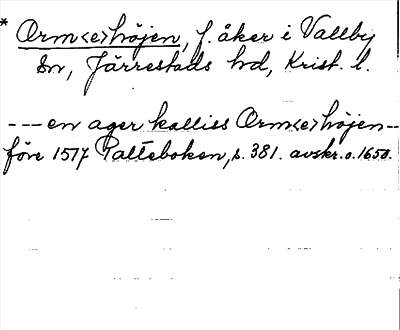 * Orm<e>höjen, f. åker i Vallby
sn, Järrestads hd, Krist. l.
---en ager kalliss Orm<e>höjen--
före 1517 Palteboken, s. 381. avskr. o. 1650.